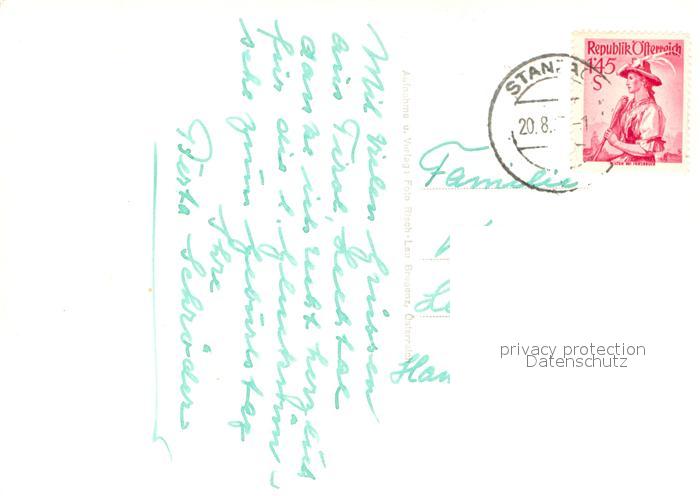 Mit vielen Grüssen
aus Tirol, Lechtal
danke ich recht herzlich
für die l. Glückwün-
sche zum Geburtstag
Ihre
Berta Schröder
Aufnahme u. Verlag: Foto Risch-Lau Bregenz, Österreich
Republik Österreich
1'45
S
STANZAC
20.8.
Familie
Han
privacy protection
Datenschutz